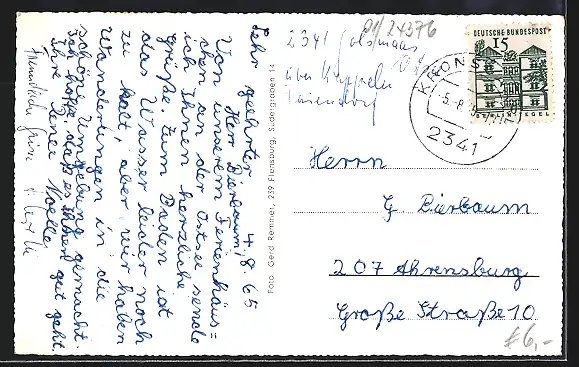 4.8.65
Sehr geehrter
Herr Bierbaum,
Von unserem Ferienhäus=
chen an der Ostsee sende
ich Ihnen herzliche
Grüße. Zum Baden ist
das Wasser leider noch
zu kalt, aber wir haben
Wanderungen in die
schöne Umgebung gemacht.
Ich hoffe, daß es Ihnen gut geht.
Ihre
Foto Gerd Remmer, 239 Flensburg, Südergraben 14
01/24376
2341
über
DEUTSCHE BUNDESPOST
15
2341
Herrn
G Bierbaum
207 Ahrensburg
Große Straße 10
€6,-